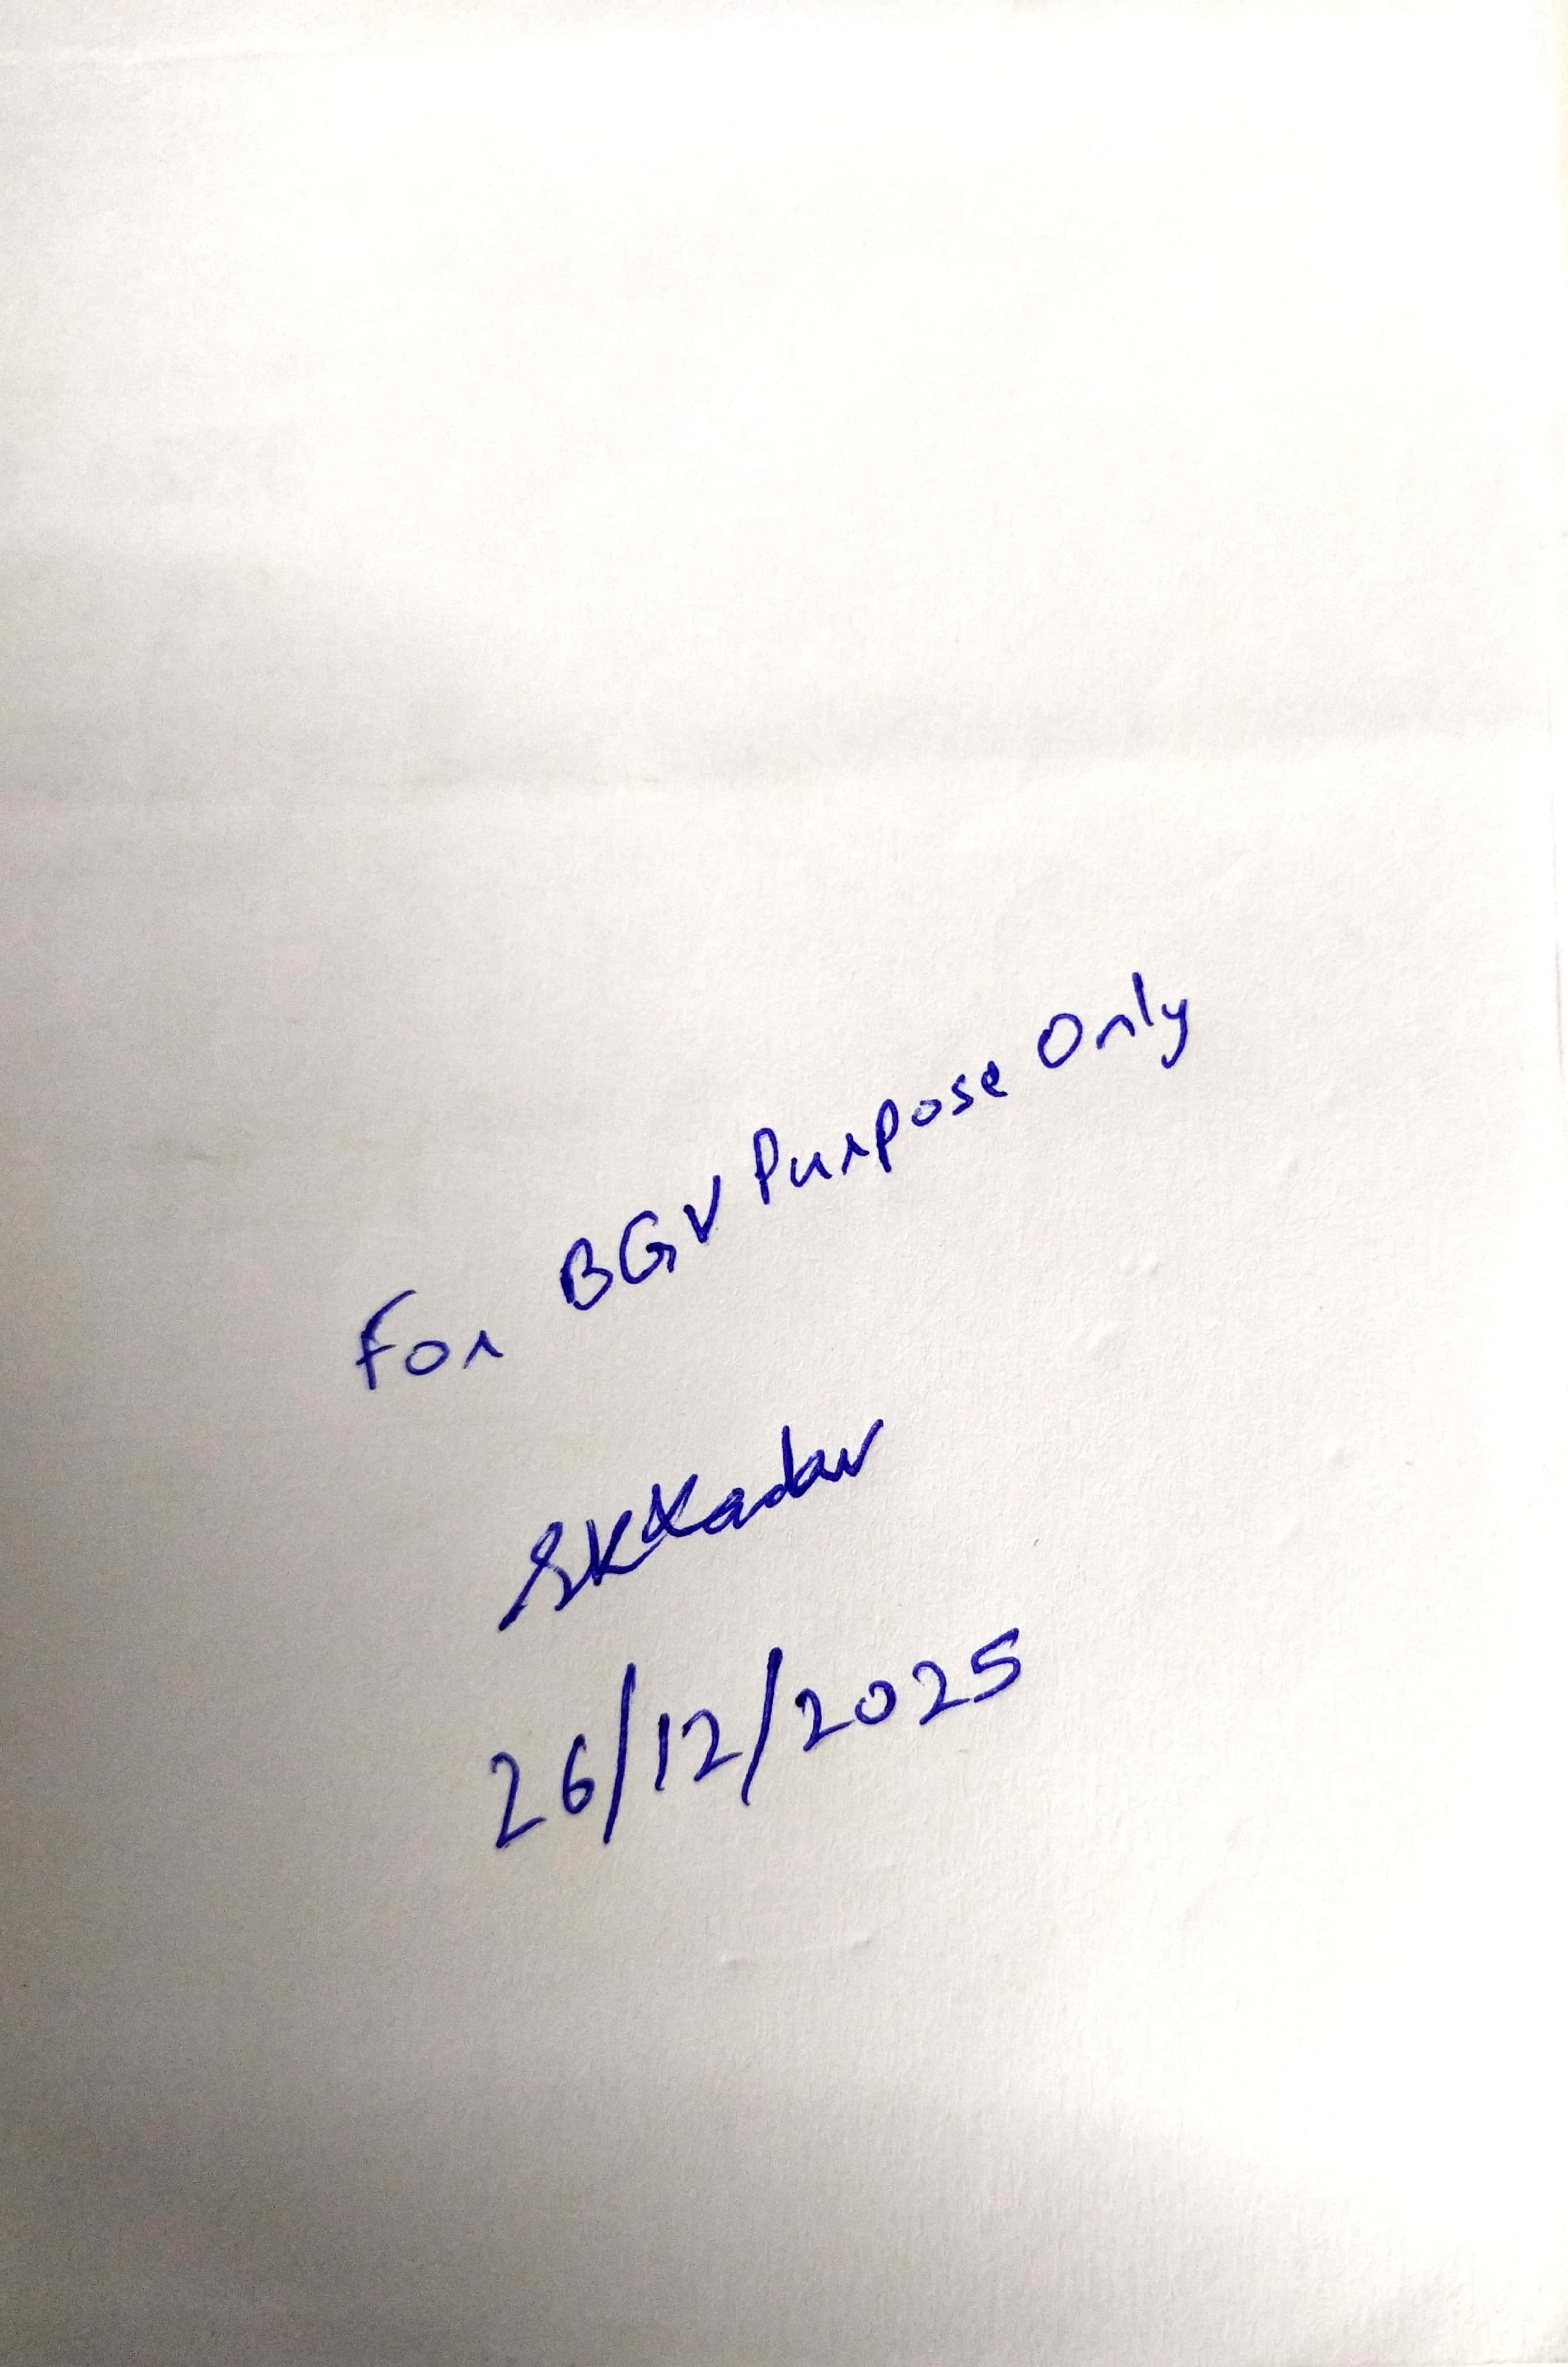 For BGV Purpose Only
SKYadav
26/12/2025